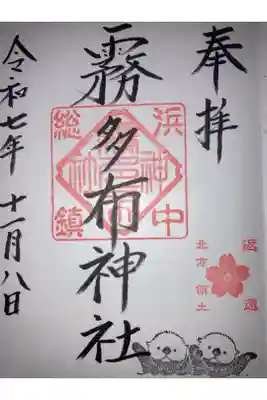 奉拝
返還
北方領土
浜中
総鎮
霧多布神社
令和七年十一月八日